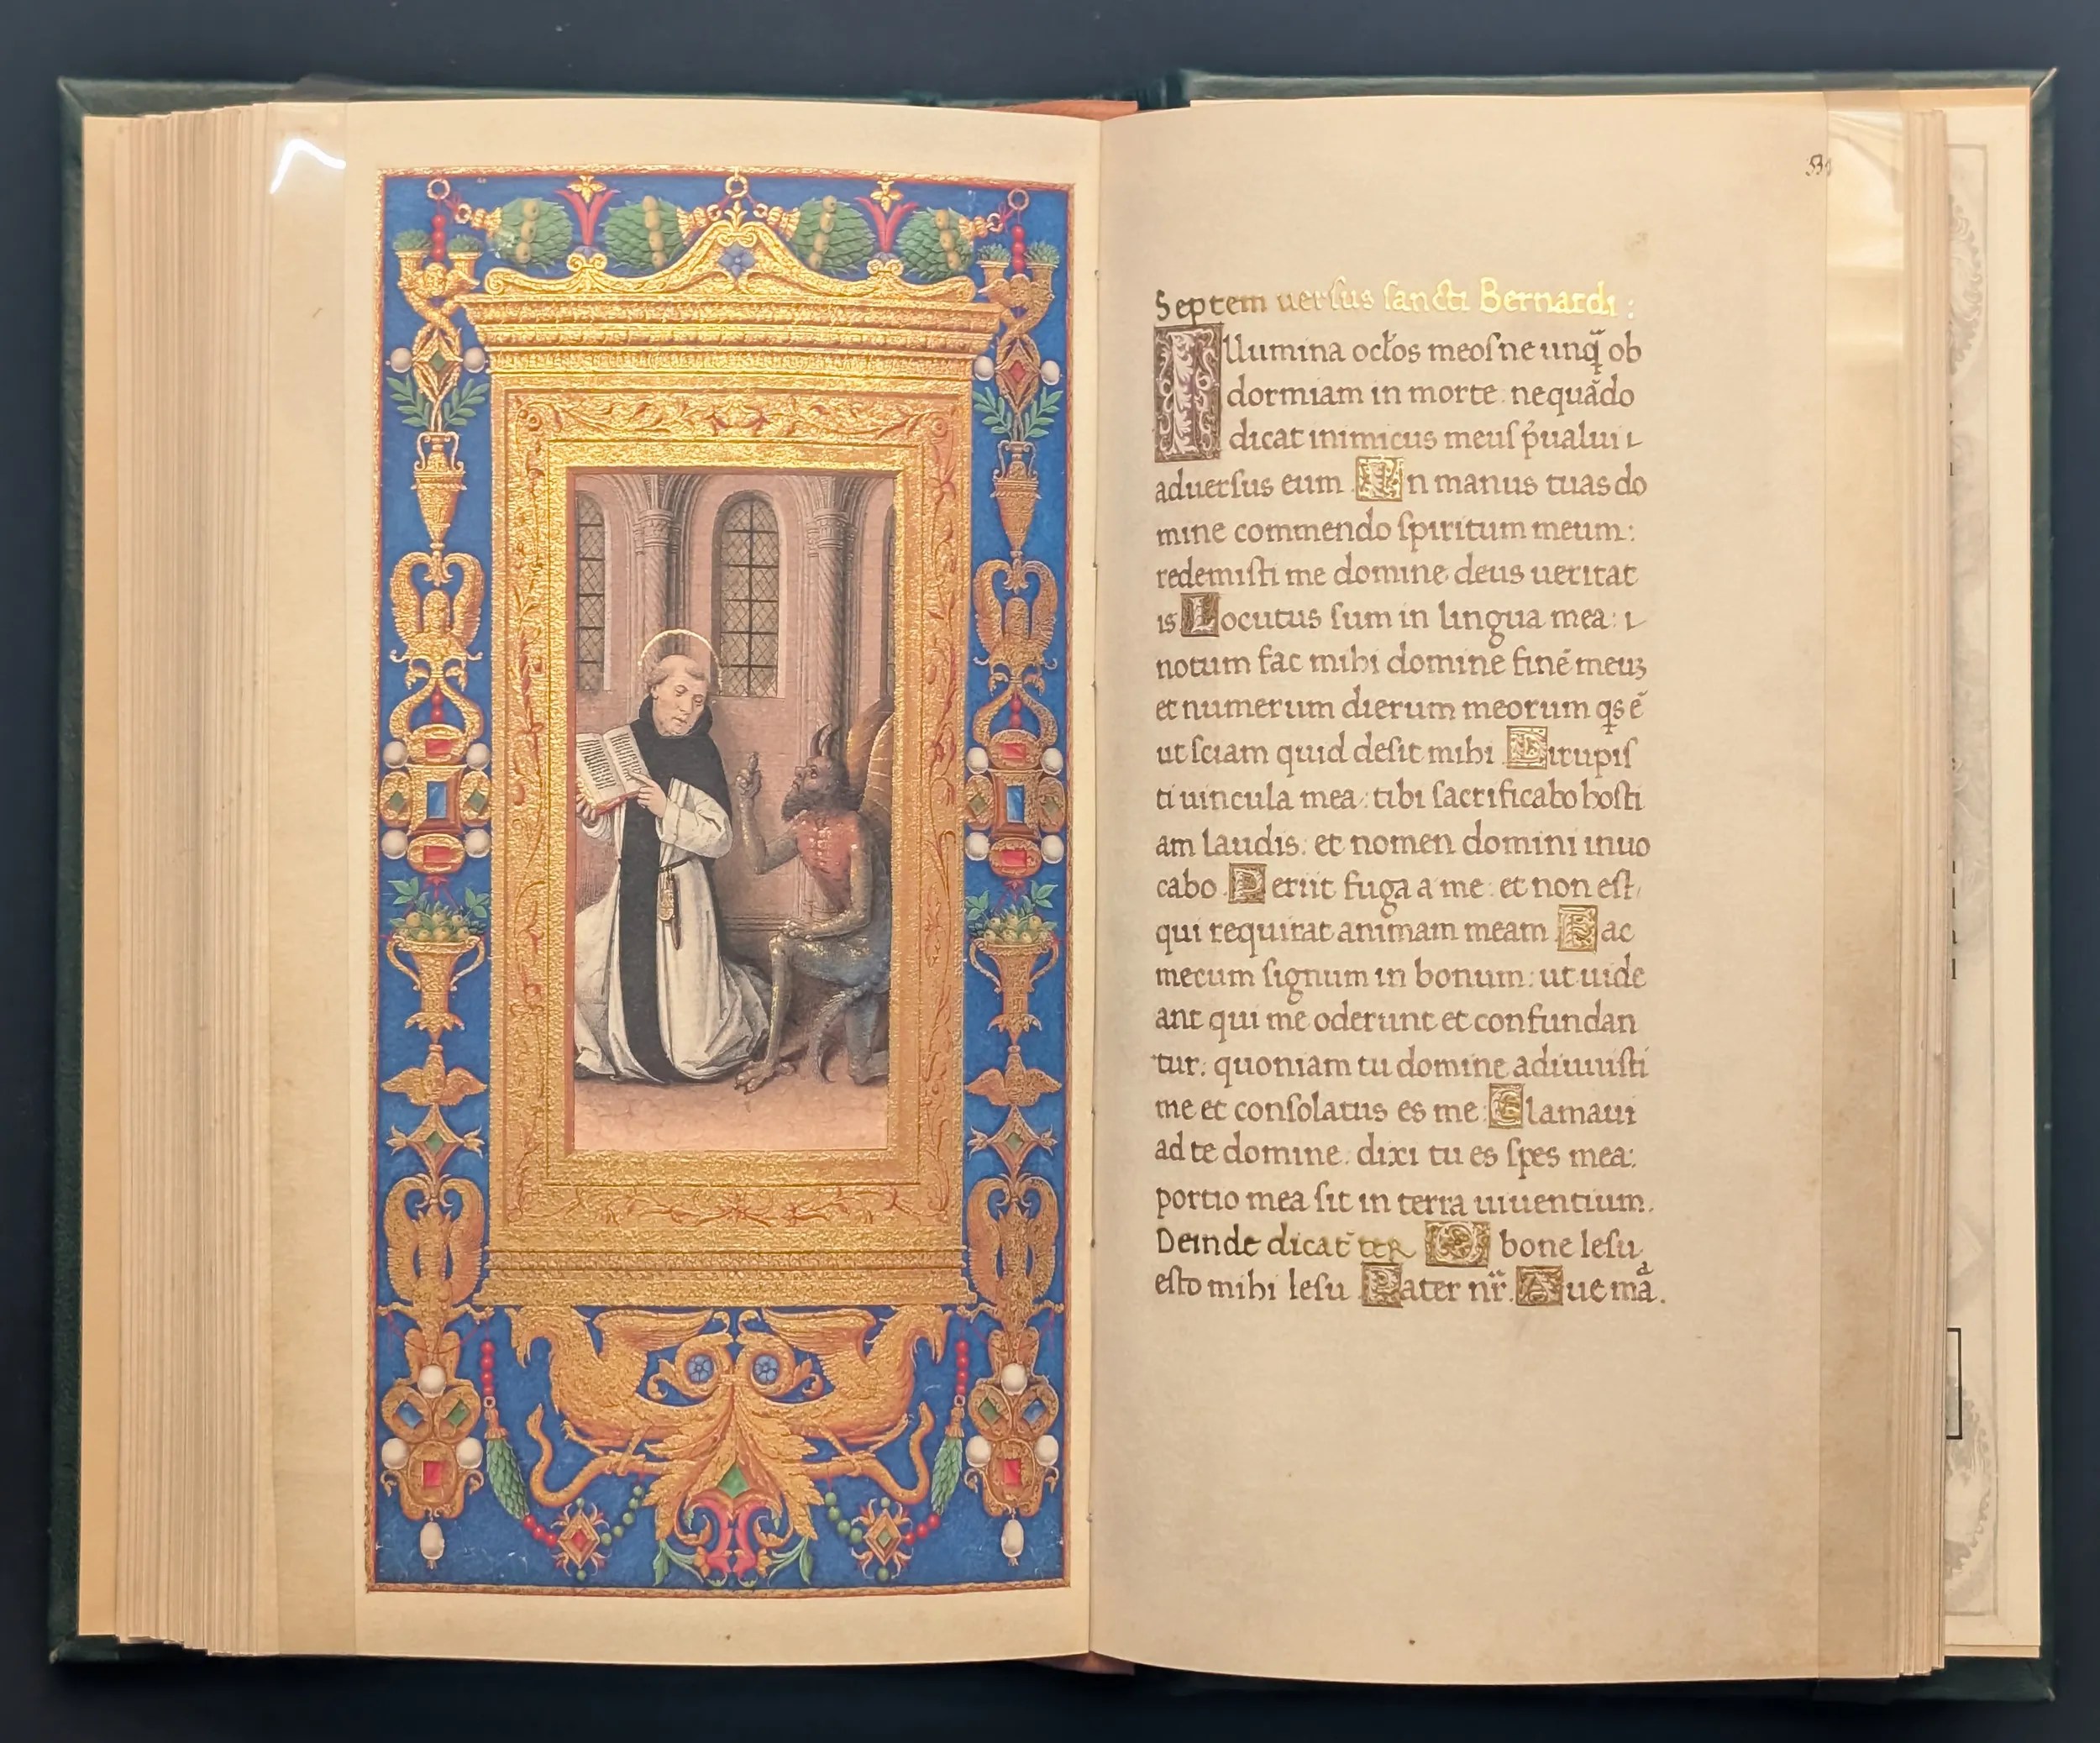 Septem uerſus ſancti Bernardi:
Illumina ocl̃os meoſ ne unq̃ ob
dormiam in morte: nequãdo
dicat inimicus meuſ p̃ualui
aduerſus eum. In manus tuas do
mine commendo ſpiritum meum:
redemiſti me domine deus ueritat
is Locutus ſum in lingua mea:
notum fac mihi domine finẽ meuʒ
et numerum dierum meorum qs ẽ
ut ſciam quid deſit mihi. Dirupiſ
ti uincula mea: tibi ſacrificabo hoſti
am laudis: et nomen domini inuo
cabo. Periit fuga a me: et non eſt
qui requirat animam meam. Fac
mecum ſignum in bonum: ut uide
ant qui me oderunt et confundan
tur: quoniam tu domine adiuuiſti
me et conſolatus es me: Clamaui
ad te domine: dixi tu es ſpes mea:
portio mea ſit in terra uiuentium.
Deinde dicat̃ ter O bone Ieſu
eſto mihi Ieſu. Pater nr̃. Aue mã.